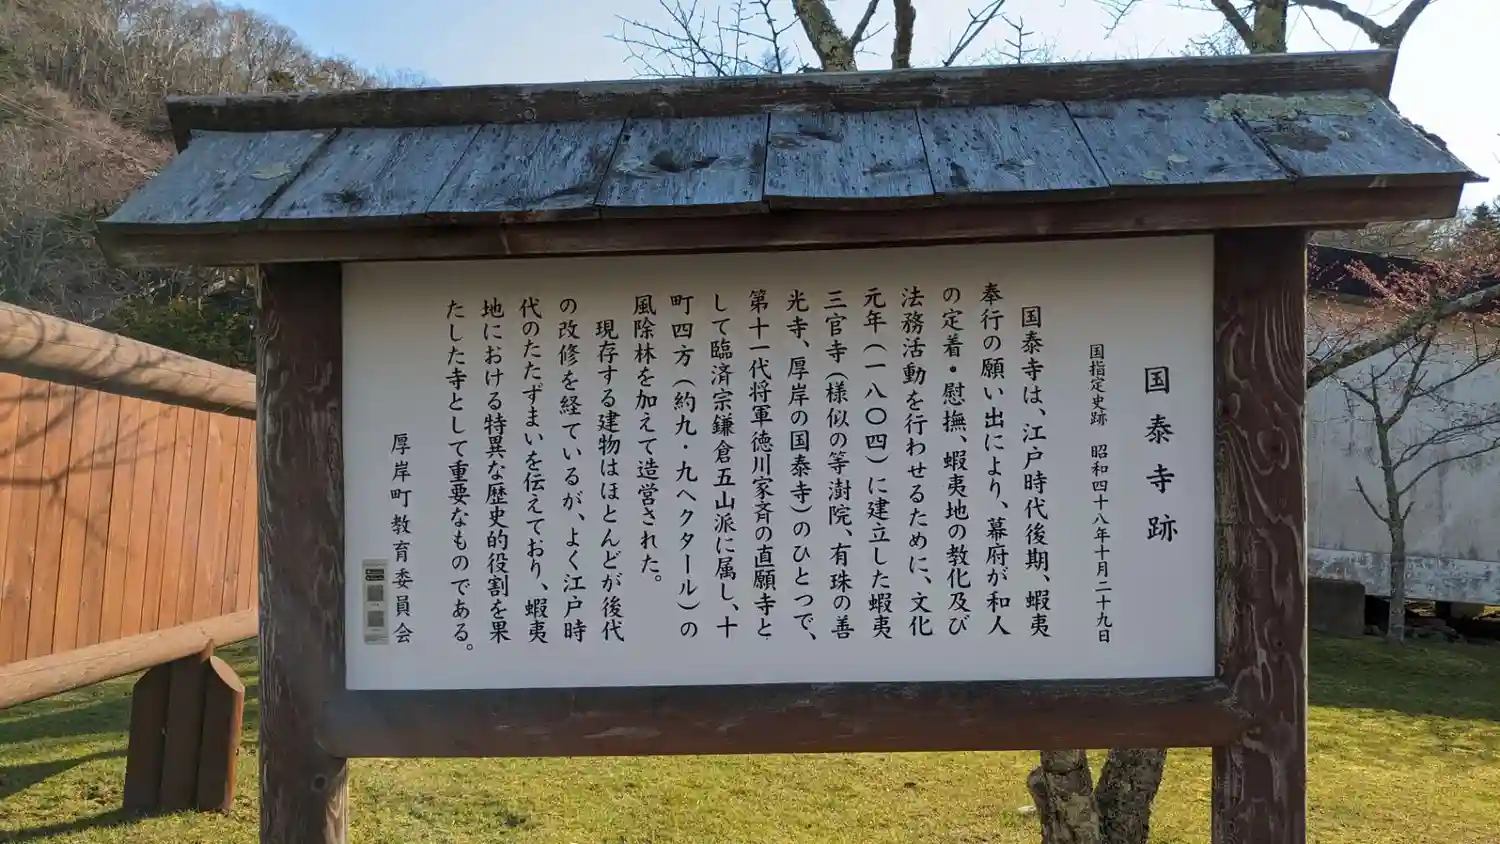 国泰寺跡
国指定史跡　昭和四十八年十月二十九日
国泰寺は、江戸時代後期、蝦夷
奉行の願い出により、幕府が和人
の定着・慰撫、蝦夷地の教化及び
法務活動を行わせるために、文化
元年（一八〇四）に建立した蝦夷
三官寺（様似の等澍院、有珠の善
光寺、厚岸の国泰寺）のひとつで、
第十一代将軍徳川家斉の直願寺と
して臨済宗鎌倉五山派に属し、十
町四方（約九・九ヘクタール）の
風除林を加えて造営された。
現存する建物はほとんどが後代
の改修を経ているが、よく江戸時
代のたたずまいを伝えており、蝦夷
地における特異な歴史的役割を果
たした寺として重要なものである。
厚岸町教育委員会